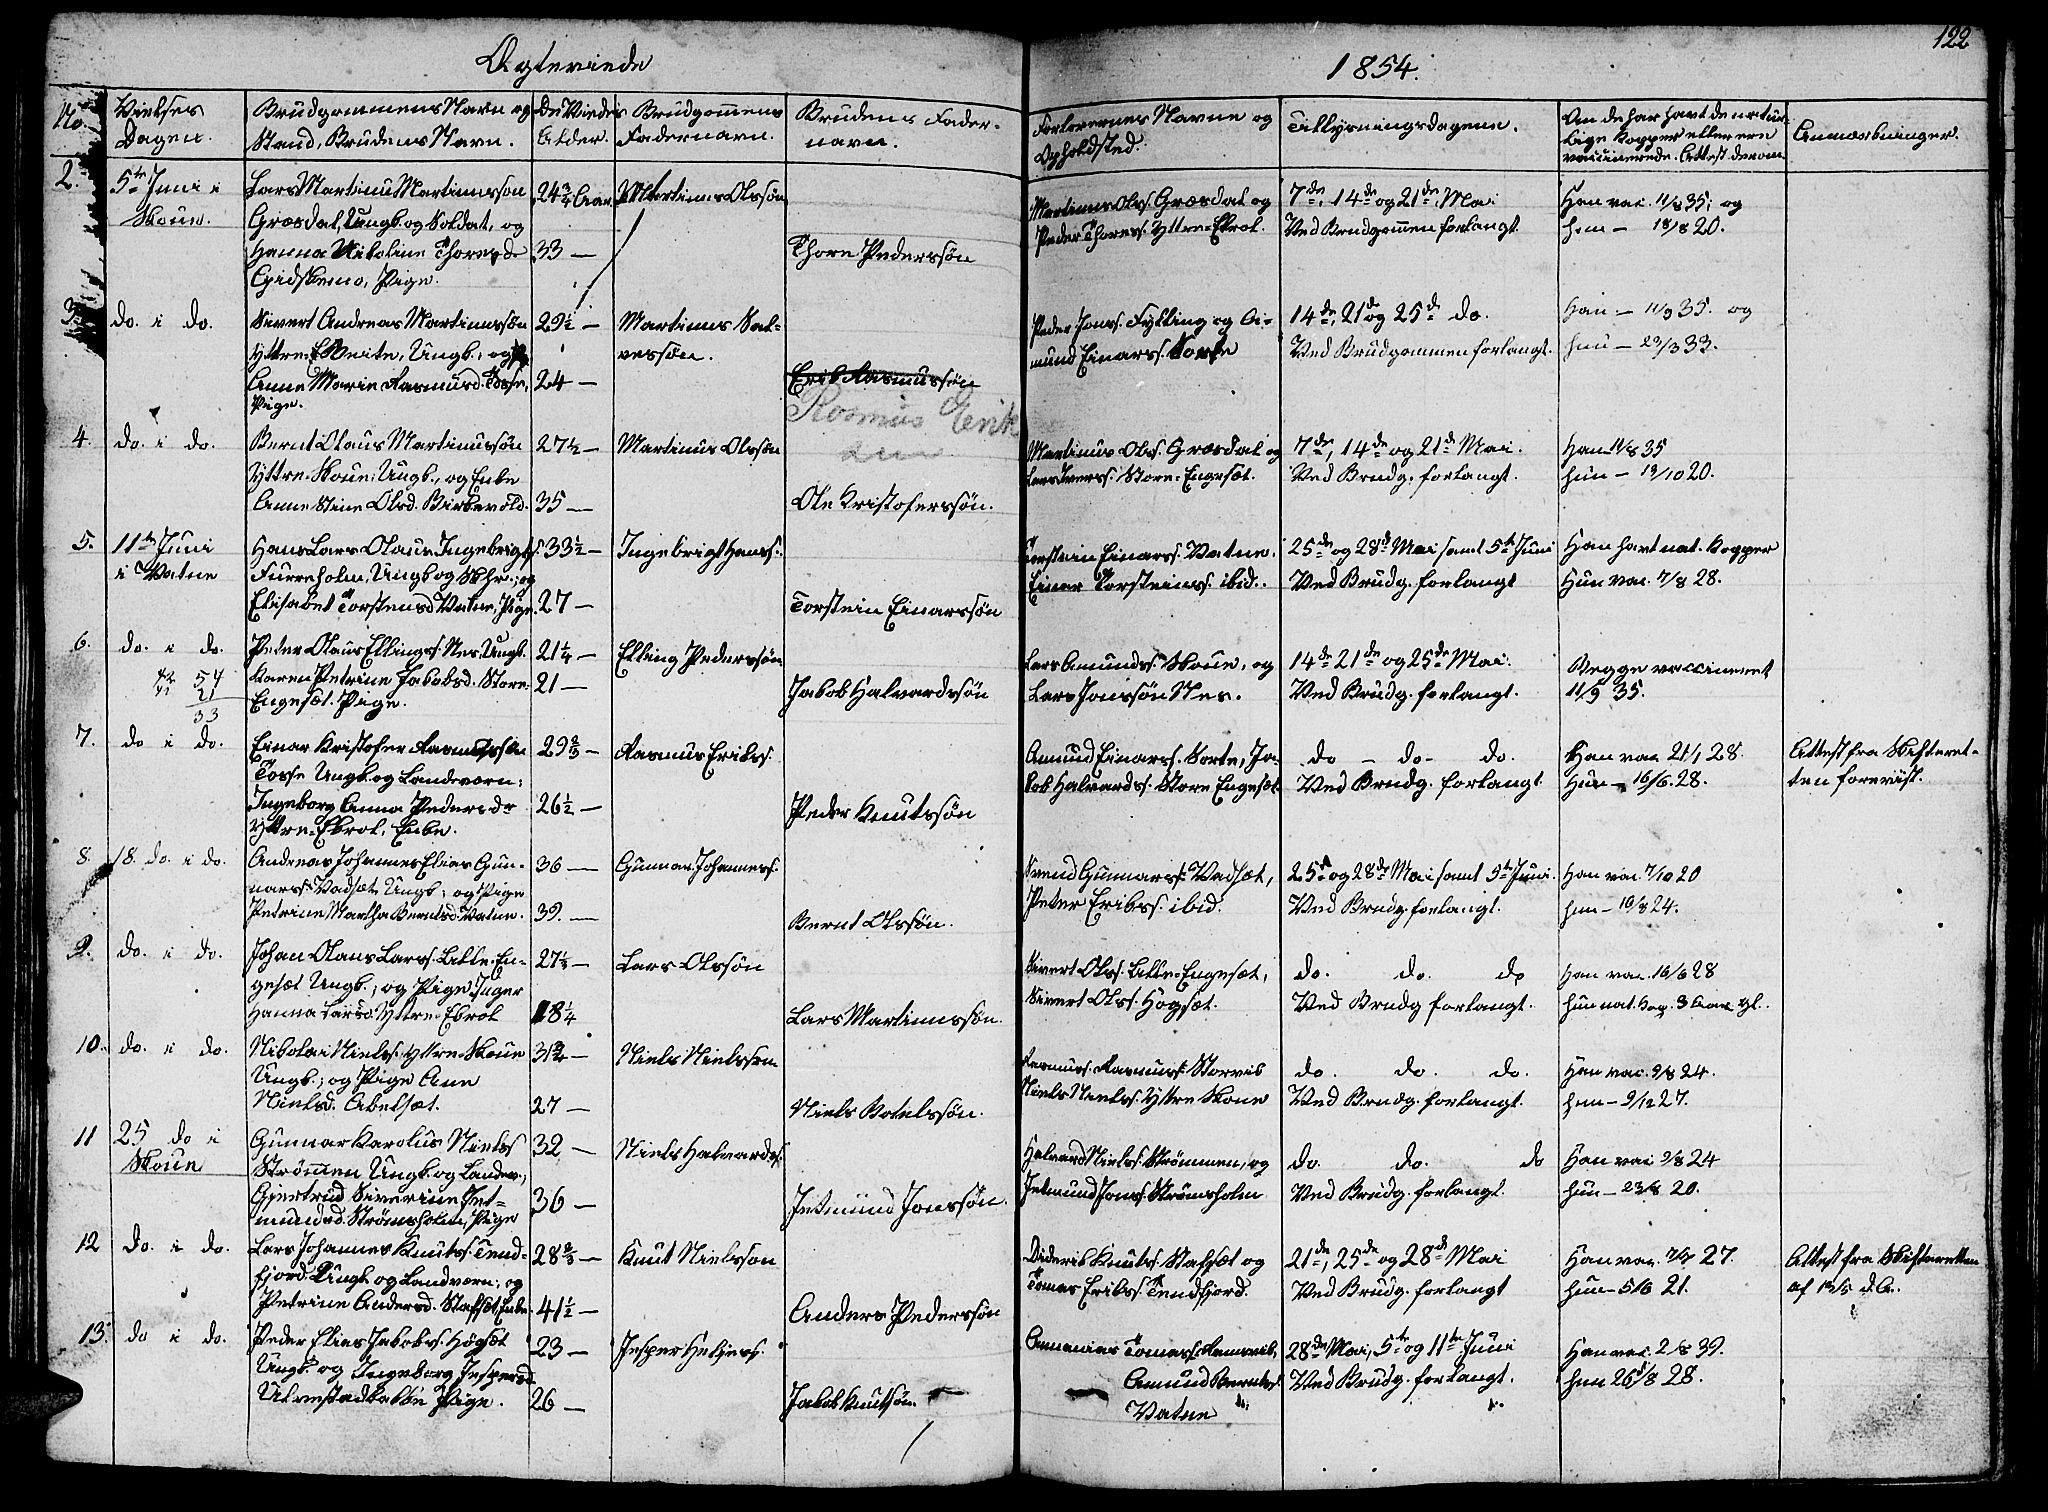 Ægteviede
1854.
122
No.
Vielses Dagen.
Brudgommens Navn og Stand, Brudens Navn.
De Viedes Alder.
Brudgommens Fadernavn.
Brudens Fadernavn.
Forlovernes Navne og Opholdsted.
Tillysningsdagene.
Om de har havt de naturlige Kopper eller ere vaccinerede. Attest derom
Anmærkninger.
2.
5te Juni i
Skoue.
Lars Martinus Martinussøn
Græsdal, Ungk. og Soldat, og
Hanna Nikoline Thoresd.
Gidskemo, Pige.
24 3/4 Aar
33 —
Martinus Olssøn
Thore Pederssøn
Martinus Olss. Græsdal og
Peder Thoress. Yttre-Ekrol.
7de, 14de og 21de Mai
Ved Brudgommen forlangt.
Han vac. 11/8 35; og
hun — 18/8 20.
3.
do. i do.
Sivert Andreas Martinussøn
Yttre Ungk., og
Anne Marie Rasmusd. Tosse,
Pige.
29 1/2 —
24 —
Martinus Salvessøn.
Erik Rasmussøn
Rasmus Erik
sen
Peder Jonss. Fylling og Aimund Einarss. Sorte
14de, 21de og 25de do.
Ved Brudgommen forlangt.
Han — 11/9 35. og
hun — 23/3 33.
4.
do. i do.
Bernt Olaus Martinussøn
Yttre-Skoue, Ungk., og Enke
Anne Stine Olsd. Birkevold.
27 1/2 —
35 —
Martinus Olssøn
Ole Kristoferssøn.
Martinus Olss. Græsdal og
Lars Iverss. Store-Engeset.
7de, 14de og 21de Mai.
Ved Brudg. forlangt.
Han 11/8 35
hun — 13/10 20.
5.
11te Juni
i Vatne
Hans Lars Olaus Ingebrigts.
Furreholm, Ungk og Skhr., og
Elisabet Torstensd Vatne, Pige.
33 1/2 —
27 —
Ingebrigt Hanss.
Torstein Einarssøn
Torstein Einarss. Vatne.
Einar Torsteinss. ibid.
25de og 28de Mai samt 5te Juni
Ved Brudg. forlangt
Han havt nat. Kopper
Hun vac. 7/8 28.
6.
do. i do.
54
21
33
Peter Olaus Ellingss. Nes, Ungk.
Karen Petrine Jakobsd. Store-
Engeset. Pige.
21 1/4 —
21 —
Elling Pederssøn
Jakob Halvardssøn
Lars Amundss. Skoue, og
Lars Jonssøn Nes.
14de 21de og 25de Mai.
Ved Brudg. forlangt.
Begge vaccineret
11/9 35.
7.
do i do.
Einar Kristofer Rasmussøn
Tosse Ungk. og Landværn;
Ingeborg Anna Pedersdr
Yttre-Ekrol, Enke.
29 2/3 —
26 1/2 —
Rasmus Eriks.
Peder Knutssøn
Amund Einarss. Sorte, Jakob Halvardss. Store Engeset.
do — do — do.
Ved Brudg. forlangt.
Han vac. 21/1 28.
Hun — 16/6 28.
Attest fra Skifteretten foreviist.
8.
18. do. i do.
Andreas Johannes Elias Gunnarss. Vadset, Ungk., og Pige
Petrine Martha Berntsd. Vatne.
36 —
39. —
Gunnar Johanness.
Bernt Olssøn.
Svend Gunnarss. Vadset,
Peter Erikss. ibid.
25de og 28de Mai samt 5te Juni.
Ved Brudg. forlangt.
Han vac. 7/10 20
hun — 10/8 24.
9.
do. i do.
Johan Olaus Larss. Lille-Engeset Ungk., og Pige Inger
Hanna Larsd. Yttre Ekrol
27 1/3 —
18 1/4
Lars Olssøn
Lars Martinussøn.
Sivert Olss. Lille-Engeset,
Sivert Olss. Høgset.
do. do. do
Ved Brudg forlangt.
Han vac. 16/6 28
hun nat. Kop. 3 Aar gl.
10.
do. i do.
Nikolai Nielss. Yttre Skoue
Ungk.; og Pige Ane
Nielsd. Abelset.
31 3/4 —
27 —
Niels Nielssøn
Niels Botelssøn.
Rasmus Rasmuss. Storvik
Niels Nielss. Yttre Skoue
do. do. do.
Ved Brudg. forlangt.
Han vac. 9/8 24.
hun — 9/12 27.
11
25 do i
Skoue
Gunnar Karolus Nielss
Strømmen Ungk. og Landev.;
Gjertrud Siverine Jetmundsd. Strømsholm, Pige
32 —
36 —
Niels Halvards.
Jetmund Jonssøn.
Halvard Nielss. Strømmen, og
Jetmund Jonss. Strømsholm
do. do. do
Ved Brudg. forlangt.
Han vac 9/8 24
hun — 23/8 20.
12
do. i do.
Lars Johannes Knutss. Tendfjord. Ungk og Landværn; og
Petrine Andersd. Stafset, Enke.
28 2/3 —
41 1/2 —
Knut Nielssøn
Anders Pederssøn
Diderik Knutss. Stafset og
Tomas Erikss. Tendfjord.
21de, 25de og 28de Mai
Ved Brudg. forlangt
Han vac. 7/7 27.
hun — 5/6 21.
Attest fra Skifteretten
af 13/5 d. A.
13.
do i do.
Peder Elias Jakobss. Høgset
Ungk. og Ingeborg Jespersd.
Ulvestadbakke Pige.
23 —
26 —
Jesper Heljess.
Jakob Knutsøn.
Annanias Tomass. Ramsvik,
Amund Berntss.
Vatne
28de Mai, 5te og 11te Juni
Ved Brudg. forlangt.
Han vac. 2/8 39.
hun 26/8 28.